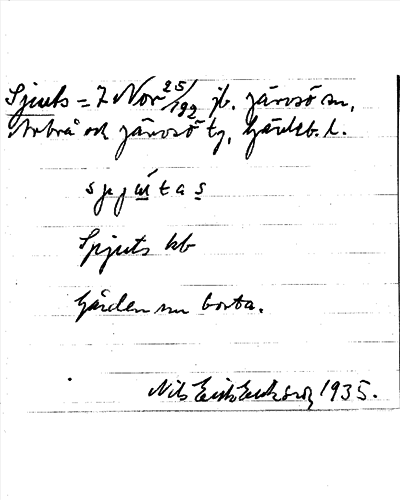 Sjuts = 7 Nor 25/192 jb. Järvsö sn,
Arbrå och Järvsö tg, Gävleb. l.
spjútas
Spjuts kb
Gården nu borta.
Nils Erik Eriksson 1935.